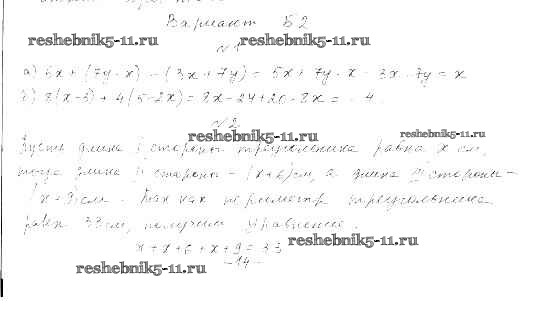 Вариант Б2
reshebnik5-11.ru reshebnik5-11.ru
№1
а) 5x + (7y - x) - (3x + 7y) = 5x + 7y - x - 3x - 7y = x
б) 8(x-3) + 4(5-2x) = 8x - 24 + 20 - 8x = - 4.
№2
reshebnik5-11.ru reshebnik5-11.ru
Пусть длина I стороны треугольника равна x см,
тогда длина II стороны - (x+6) см, а длина III стороны -
(x+9) см. Так как периметр треугольника
равен 33 см, получим уравнение.
reshebnik5-11.ru
x + x + 6 + x + 9 = 33
reshebnik5-11.ru
14